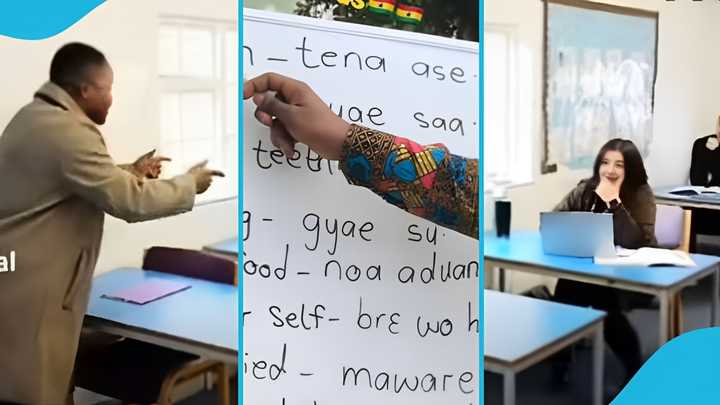 al
– tena ase.
yae saa.
teeth
– gyae su.
ood – noa aduan
self – brɛ wo h
ied – maware